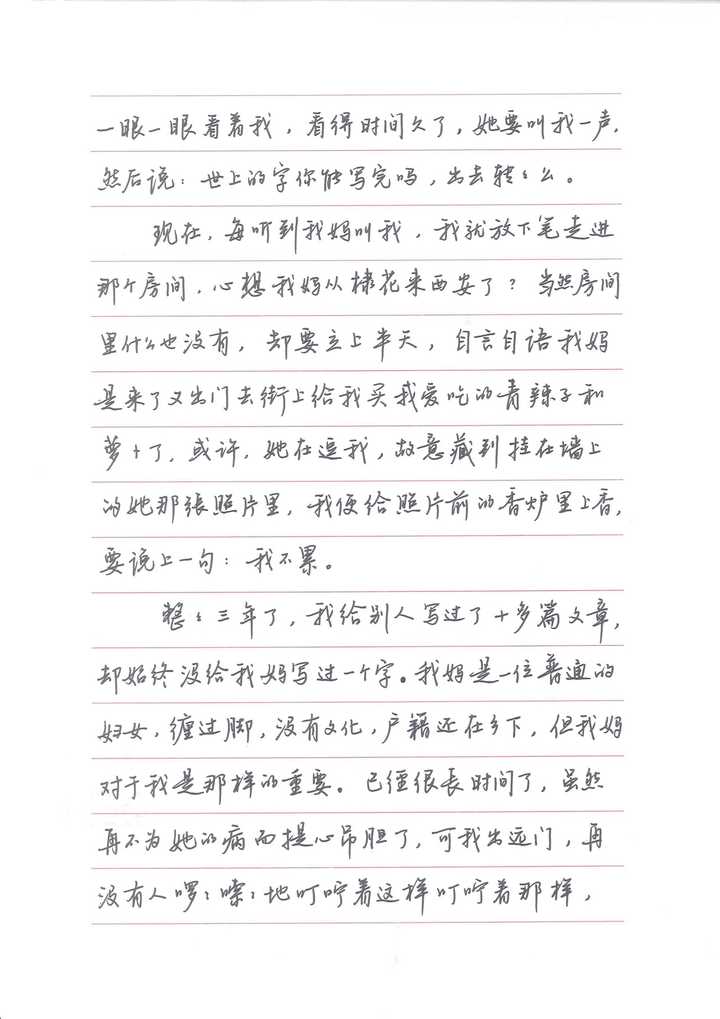 一眼一眼看着我，看得时间久了，她要叫我一声，
然后说：世上的字你能写完吗，出去转〻么。
现在，每听到我妈叫我，我就放下笔走进
那个房间，心想我妈从棣花来西安了？当然房间
里什么也没有，却要立上半天，自言自语我妈
是来了又出门去街上给我买我爱吃的青辣子和
萝卜了，或许，她在逗我，故意藏到挂在墙上
的她那张照片里，我便给照片前的香炉里上香，
要说上一句：我不累。
整〻三年了，我给别人写过了十多篇文章，
却始终没给我妈写过一个字。我妈是一位普通的
妇女，缠过脚，没有文化，户籍还在乡下，但我妈
对于我是那样的重要。已经很长时间了，虽然
再不为她的病而提心吊胆了，可我出远门，再
没有人啰〻嗦〻地叮咛着这样叮咛着那样，